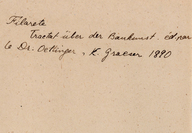 Filarete
Tractat über der Baukunst. éd par
le Dr. Oettinger. K. Graeser 1890